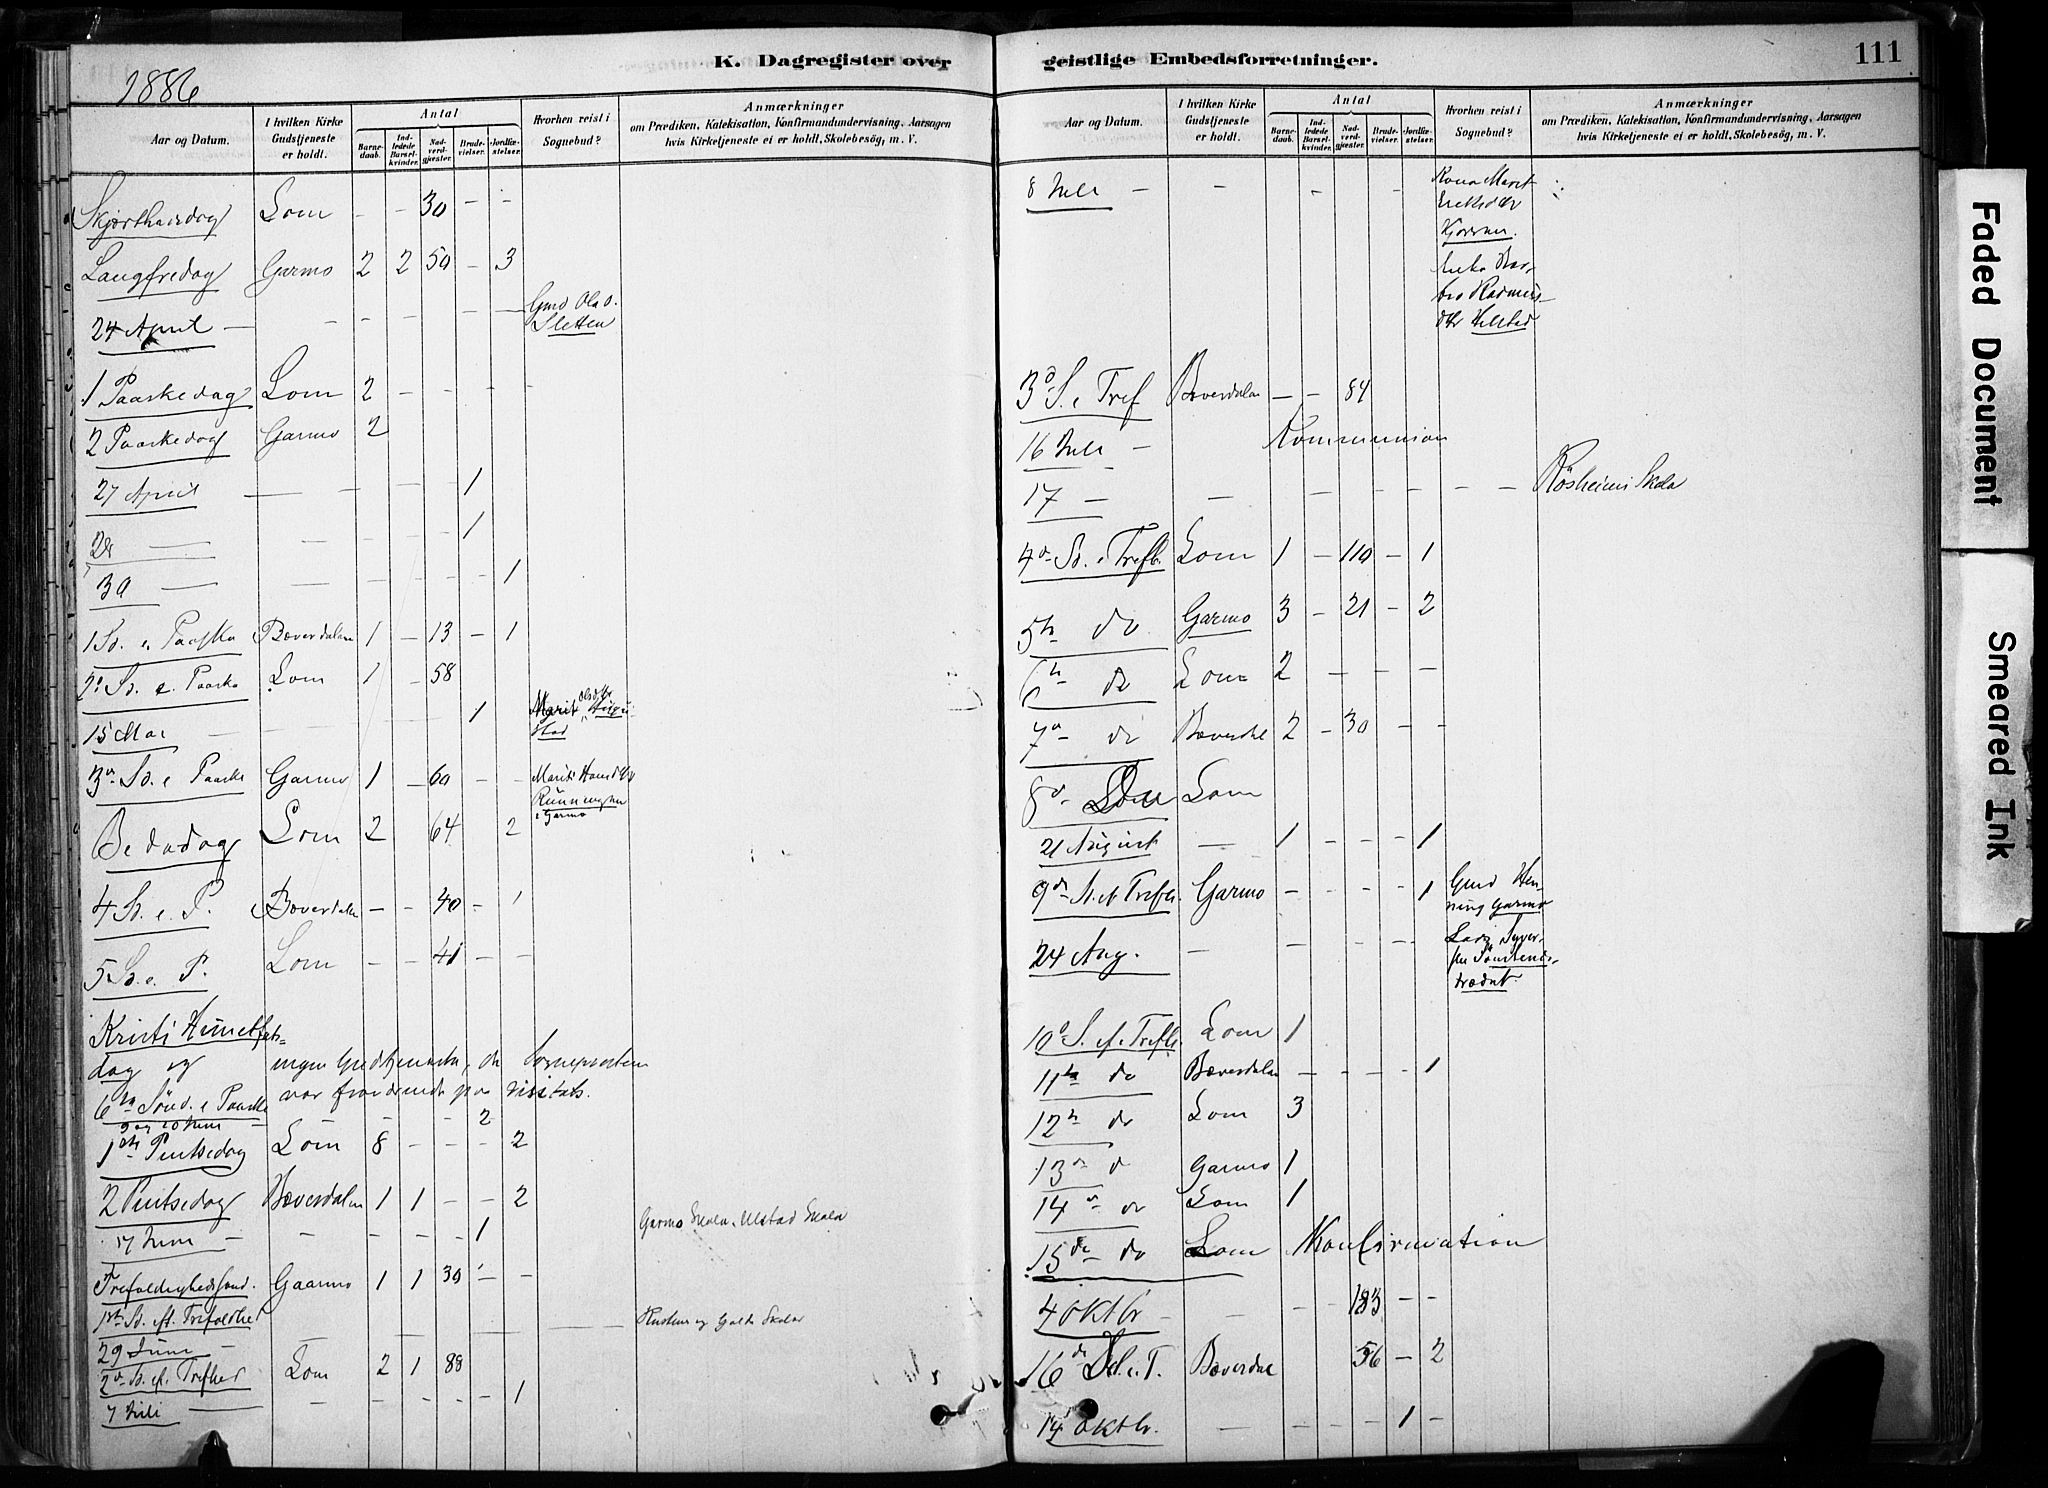 1886
K. Dagregister over
Aar og Datum. I hvilken Kirke Gudstjeneste er holdt. Antal Barnedaab. Indledede Barselkvinder. Nadverdgjæster. Brudevielser. Jordfæstelser. Hvorhen reist i Sognebud? Anmærkninger om Prædiken, Katekisation, Konfirmandundervisning, Aarsagen hvis Kirketjeneste ei er holdt, Skolebesög, m. V.
Skjærthorsdag Lom - - 30 - -
Langfredag Garmo 2 2 50 - 3
24 April - - - - - - - Gmd Ola O. Sletten
1 Paaskedag Lom 2 - - - -
2 Paaskedag Garmo 2
27 April - - - - 1
28 - - - - - 1
30 - - - - - - 1
1 S. e. Paaske Bæverdalen 1 - 13 - 1
2d S. e. Paaske Lom 1 - 58
15 Mai - - - - 1 Marit Olsdtr
3de S. e. Paaske Garmo 1 - 60 - - Marit Hansdtr i Garmo
Bededag Lom 2 64 2
4 S. e. P. Bæverdalen - - 40 - 1
5 S. e. P. Lom - - 41 - -
Kristi Himmelfarts-
dag og ingen Gudstjeneste, da Sogneprosten
6te Sönd. e Paaske var fraværende paa Visitats.
9 og 10 Juni - - - 2
1ste Pintsedag Lom 8 - - - 2
2 Pintsedag Bæverdalen 1 1 - - 2
17 Juni - - - - - 1 Garmo Skole, Ulstad Skole
Trefoldighedssönd. Gaarmo 1 1 30 - -
1ste S. eft. Trefoldhed
29 Juni - - - - - - - Skoler
2d S. ef. Trefhed Lom 2 1 88
7 Juli - - - - - 1
geistlige Embedsforretninger.
111
Aar og Datum. I hvilken Kirke Gudstjeneste er holdt. Antal Barnedaab. Indledede Barselkvinder. Nadverdgjæster. Brudevielser. Jordfæstelser. Hvorhen reist i Sognebud? Anmærkninger om Prædiken, Katekisation, Konfirmandundervisning, Aarsagen hvis Kirketjeneste ei er holdt, Skolebesög, m. V.
8 Juli - - - - Kona Marit
Enke
3d S. e Tref Bæverdalen - - 84
16 Juli - Kommunion
17 - - - - - - - - - Røsheim Skole
4d S. e Trefh. Lom 1 - 110 - 1
5te do Garmo 3 - 21 - 2
6te do Lom 2 - - - -
7d do Bæverdal 2 - 30 - -
8d Do Lom
21 August - 1 - - - 1
9de S. ef Trefh. Garmo - - - - 1 Gmd Hen-
ning Garmo
24 Aug. - - - - - Lars Syver-
10d S. ef. Trefh. Lom 1
11te do Bæverdalen - - - - 1
12te do Lom 3
13d d Garmo 1
14d do Lom 1
15de do Lom Konfirmation
4 Oktbr - - - 183 - -
16de S. e. T. Bæverdal 56 - 2
14 Oktbr. - - - - 1 -
Faded Document
Smeared Ink